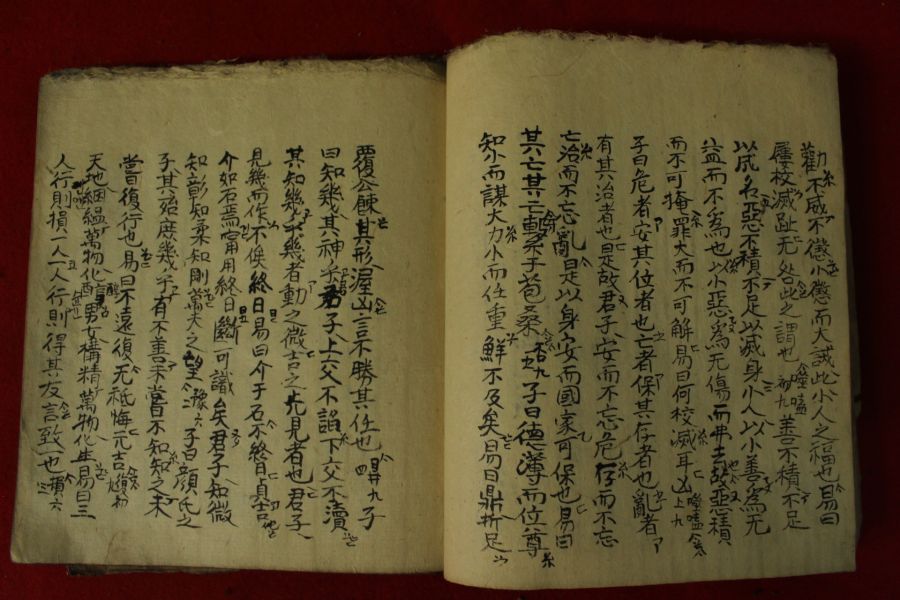 勸不威不懲小懲而大誡此小人之福也易曰
屨校滅趾无咎此之謂也 噬嗑初九 善不積不足
以成名惡不積不足以滅身小人以小善爲无
益而不爲也以小惡爲无傷而弗去故惡積
而不可掩罪大而不可解易曰何校滅耳凶 噬嗑上九
子曰危者安其位者也亡者保其存者也亂者
有其治者也是故君子安而不忘危存而不忘
亡治而不忘亂是以身安而國家可保也易曰
其亡其亡繫于苞桑 否九五 子曰德薄而位尊
知小而謀大力小而任重鮮不及矣易曰鼎折足
覆公餗其形渥凶言不勝其任也 鼎九四 子
曰知幾其神乎君子上交不諂下交不瀆
其知幾乎幾者動之微吉之先見者也君子
見幾而作不俟終日易曰介于石不終日貞吉
介如石焉甯用終日斷可識矣君子知微
知彰知柔知剛萬夫之望 豫六二 子曰顔氏之
子其殆庶幾乎有不善未嘗不知知之未
嘗復行也易曰不遠復无祗悔元吉 復初九
天地絪縕萬物化醇男女構精萬物化生易曰三
人行則損一人一人行則得其友言致一也 損六三